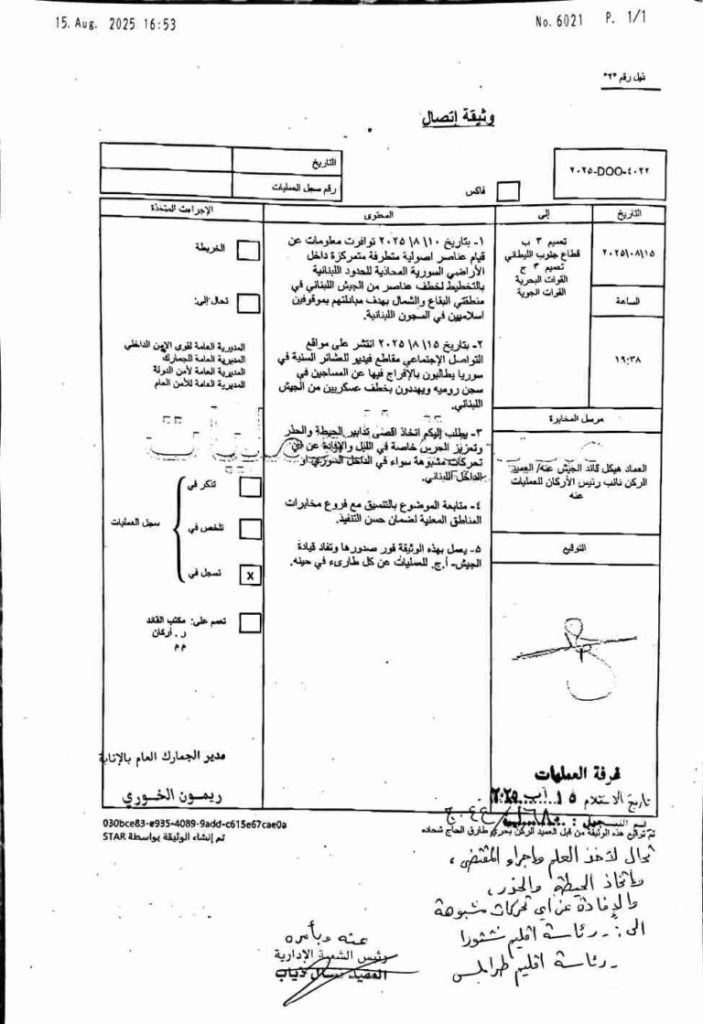 15. Aug. 2025 16:53
No. 6021 P. 1/1
ذيل رقم "٢"
وثيقة إتصال
٢٠٢٥-DOO-٤٠٢٢
فاكس
التاريخ
رقم سجل العمليات
التاريخ
إلى
المحتوى
الإجراءات المتخذة
٢٠٢٥/٠٨/١٥
الساعة
١٩:٣٨
تعميم ٣ ب
قطاع جنوب الليطاني
تعميم ٣ ج
القوات البحرية
القوات الجوية
مرسل المخابرة
العماد هيكل قائد الجيش عنه/ العميد
الركن نائب رئيس الأركان للعمليات
عنه
التوقيع
١- بتاريخ ١٠/ ٨/ ٢٠٢٥ توافرت معلومات عن
قيام عناصر اصولية متطرفة متمركزة داخل
الأراضي السورية المحاذية للحدود اللبنانية
بالتخطيط لخطف عناصر من الجيش اللبناني في
منطقتي البقاع والشمال بهدف مبادلتهم بموقوفين
اسلاميين في السجون اللبنانية.
٢- بتاريخ ١٥/ ٨/ ٢٠٢٥ انتشر على مواقع
التواصل الإجتماعي مقاطع فيديو للعشائر السنية في
سوريا يطالبون بالإفراج فيها عن المساجين في
سجن روميه ويهددون بخطف عسكريين من الجيش
اللبناني.
٣- يطلب إليكم اتخاذ اقصى تدابير الحيطة والحذر
وتعزيز الحرس خاصة في الليل والإفادة عن اي
تحركات مشبوهة سواء في الداخل السوري او
الداخل اللبناني.
٤- متابعة الموضوع بالتنسيق مع فروع مخابرات
المناطق المعنية لضمان حسن التنفيذ.
٥- يعمل بهذه الوثيقة فور صدورها وتفاد قيادة
الجيش- أ.ج. للعمليات عن كل طارىء في حينه.
الخريطة
تحال إلى:
المديرية العامة لقوى الامن الداخلي
المديرية العامة للجمارك
المديرية العامة لأمن الدولة
المديرية العامة للأمن العام
سجل العمليات
تذكر في
تلخص في
تسجل في
X
تعمم على: مكتب القائد
ر. أركان
م م
مدير الجمارك العام بالإنابة
ريمون الخوري
030bce83-e935-4089-9add-c615e67cae0a
تم إنشاء الوثيقة بواسطة STAR
غرفة العمليات
تاريخ الاستلام ١٥ آب ٢٠٢٥
تم توقيع هذه الوثيقة من قبل العميد الركن بحري طارق الحاج شحاده
تحال لأخذ العلم واجراء المقتضى،
واتخاذ الحيطة والحذر،
والإفادة عن اي تحركات مشبوهة
الى: - رئاسة اقليم شتورا
- رئاسة اقليم طرابلس
عنه وبأمره
رئيس الشعبة الإدارية